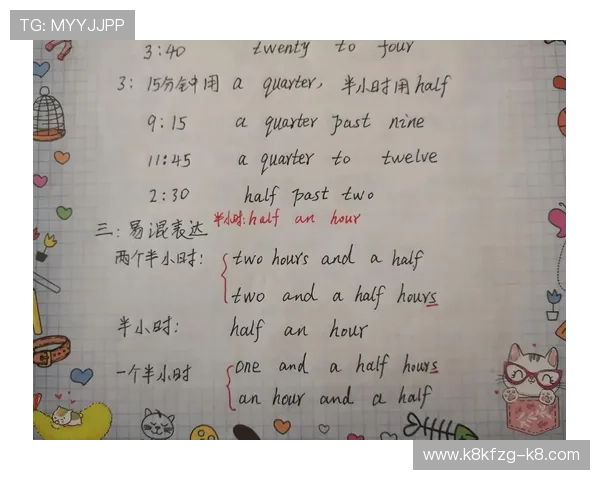 TG: MYYJJPP
3:40 twenty to four
3: 15分钟用 a quarter, 半小时用 half
9:15 a quarter past nine
11:45 a quarter to twelve
2:30 half past two
三: 易混表达 半小时: half an hour
两个半小时: two hours and a half
two and a half hours
半小时: half an hour
一个半小时 one and a half hours
an hour and a half
www.k8kfzg-k8.com